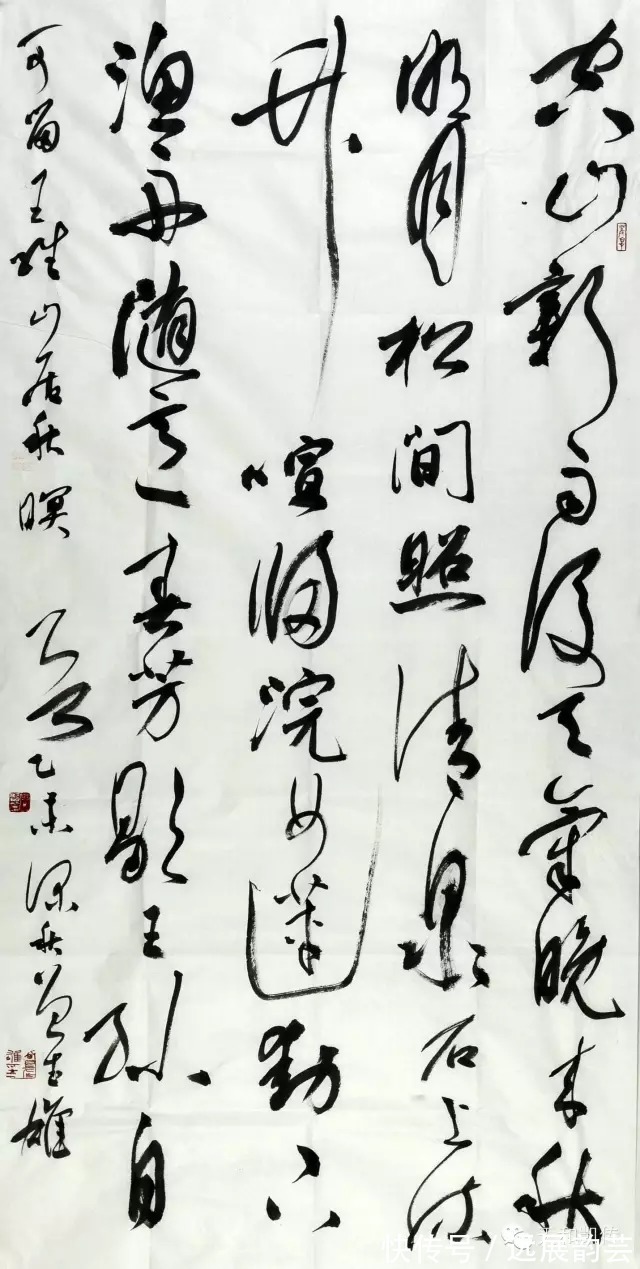 空山新雨後天氣晚来秋
明月松间照清泉石上流
竹喧归浣女莲动下
渔舟随意春芳歇王孙自
可留王维山居秋暝
乙未深秋
快传号 / 远展韵芸